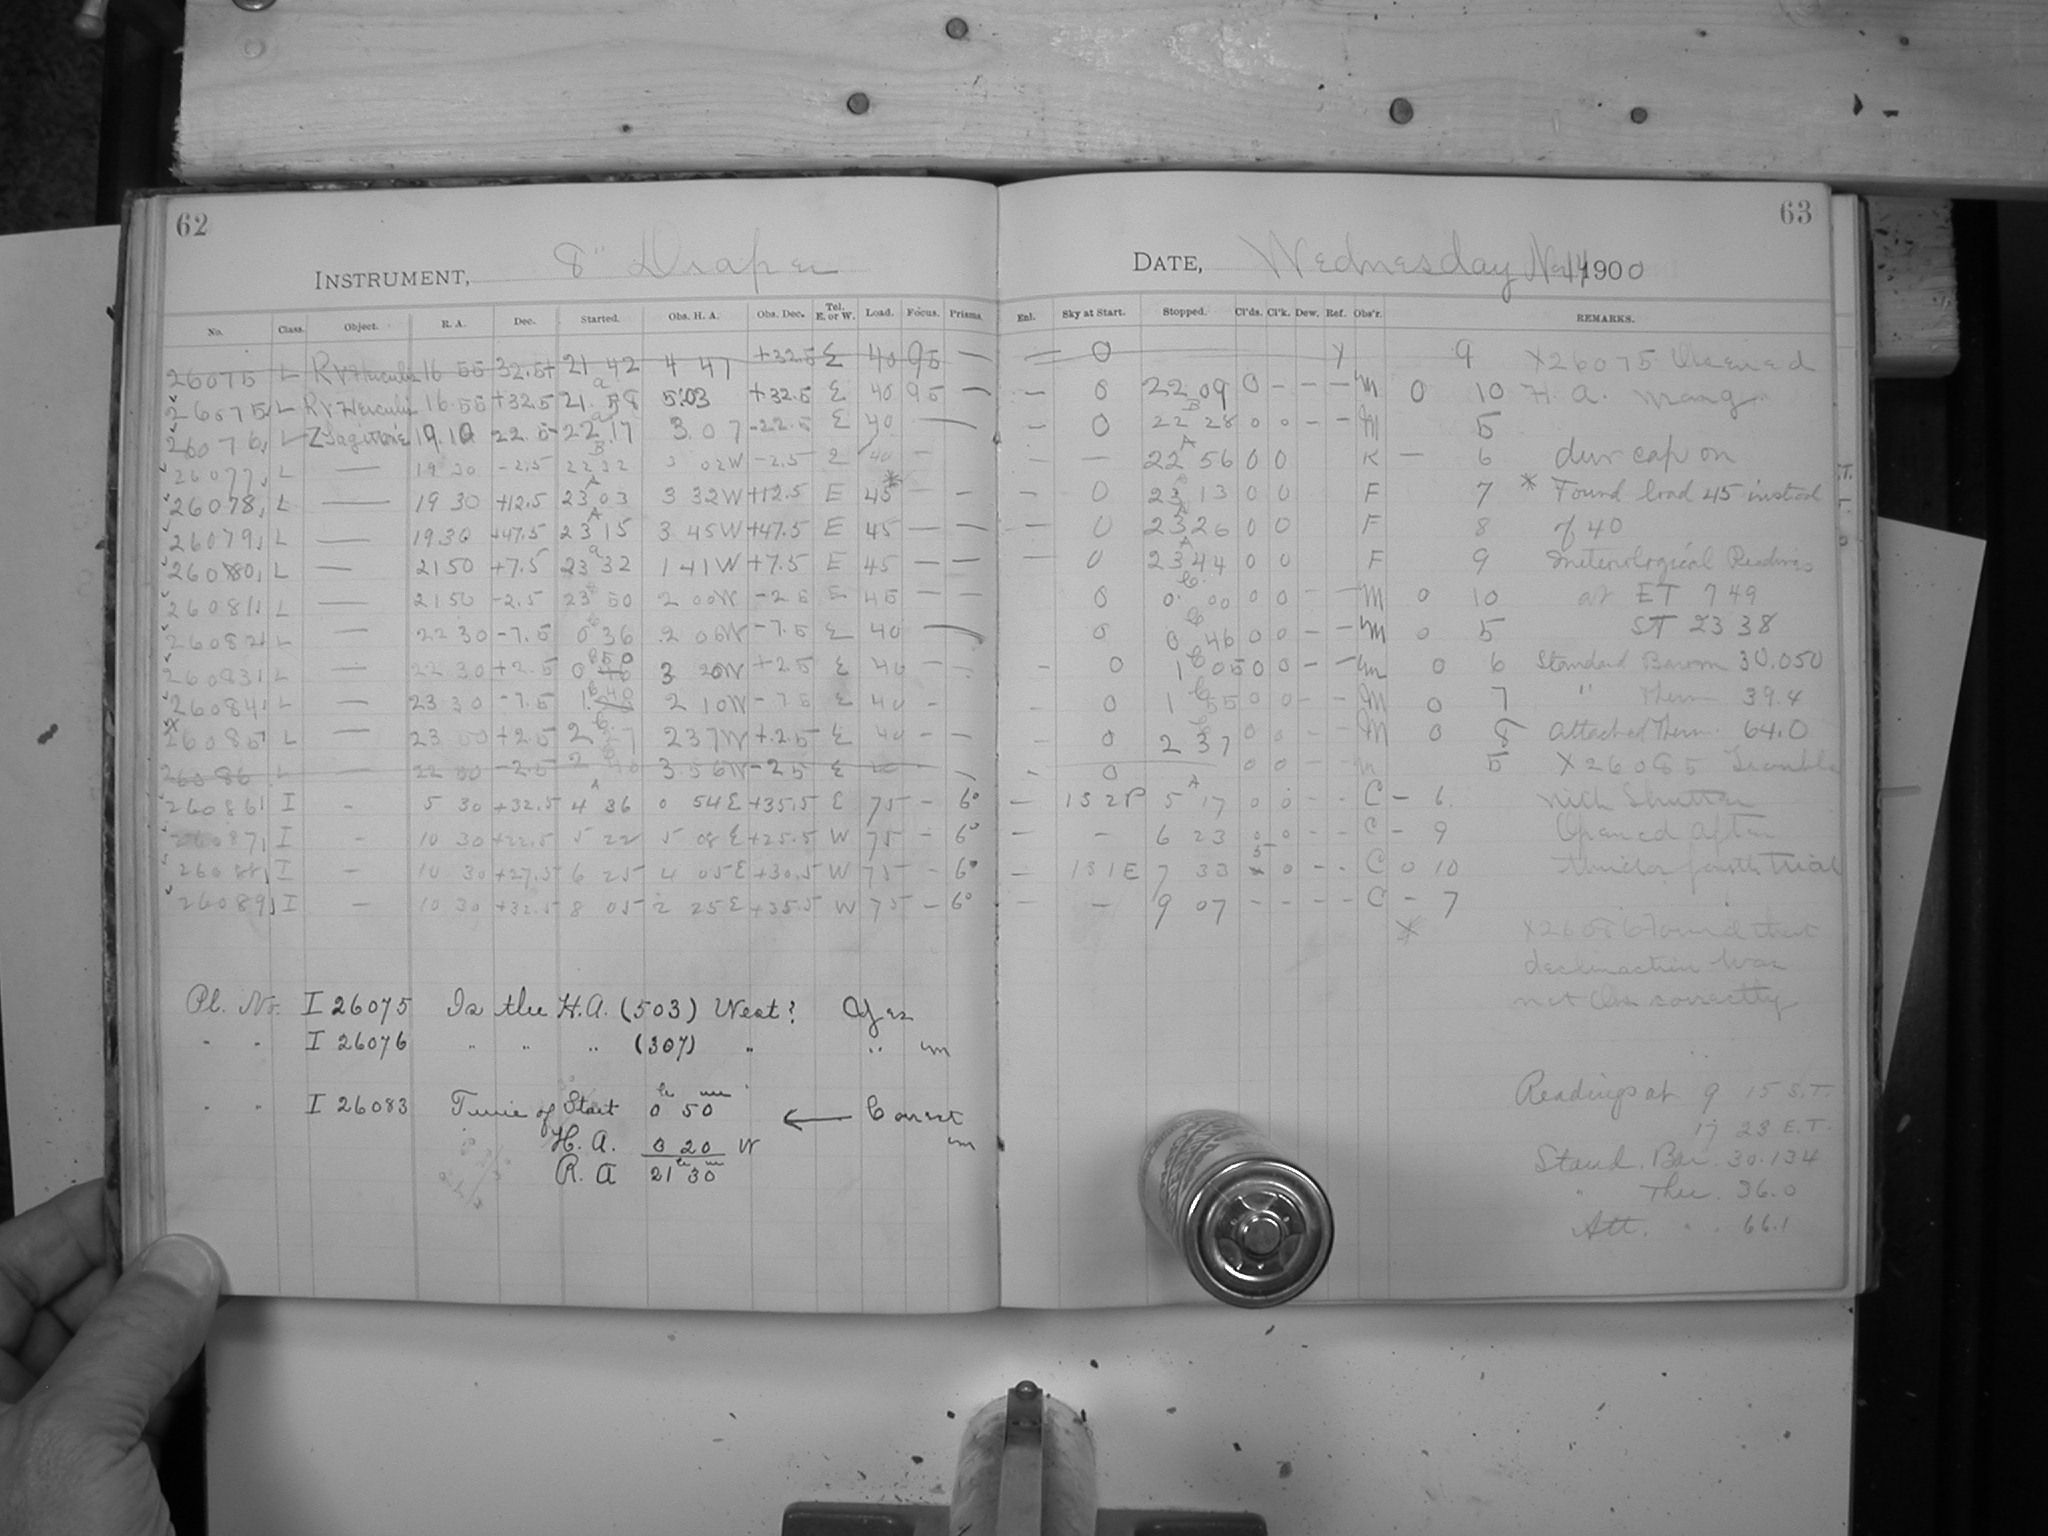 62
INSTRUMENT, 8" Draper
No. Class. Object. R. A. Dec. Started. Obs. H. A. Obs. Dec. Tel. E. or W. Load. Focus. Prisms.
26075 L RV Herculis 16 55 32.5+ 21 42 4 47 +32.5 E 40 95 —
26075 L RV Herculis 16.55 +32.5 21.58 5.03 +32.5 E 40 95 —
26076 L Z Sagittarii 19.10 22.5- 22 17 3.07 -22.5 E 40 —
26077 L — 19 30 -2.5 22 32 3 02W -2.5 E 40 -
26078 L — 19 30 +12.5 23 03 3 32W +12.5 E 45* — —
26079 L — 19 30 +47.5 23 15 3 45W +47.5 E 45 — —
26080 L — 21 50 +7.5 23 32 1 41W +7.5 E 45 — —
26081 L — 21 50 -2.5 23 50 2 00W -2.5 E 45 — —
26082 L — 22 30 -7.5 0 36 2 06W -7.5 E 40 —
26083 L — 22 30 +2.5 0 50 3 20W +2.5 E 40 — —
26084 L — 23 30 -7.5 1 40 2 10W -7.5 E 40 -
26085 L — 23 50 +2.5 2 27 2 37W +2.5 E 40 — —
26086 L — -2.5 3 56W -2.5 E —
26086 I - 5 30 +32.5 4 36 0 54E +35.5 E 75 - 6°
26087 I - 10 30 +22.5 5 22 5 08E +25.5 W 75 - 6°
26088 I - 10 30 +27.5 6 25 4 05E +30.5 W 75 - 6°
26089 I - 10 30 +32.5 8 05 2 25E +35.5 W 75 - 6°
Pl. No. I 26075 Is the H.A. (503) West? Yes
" " I 26076 " " " (307) " " m
" " I 26083 Time of Start 0h 50m ← Correct
H. A. 0 20 W m
R. A 21h 30m
63
DATE, Wednesday Nov 14 1900
Enl. Sky at Start. Stopped. Cl'ds. Cl'k. Dew. Ref. Obs'r. REMARKS.
0 9 X26075 Opened
0 22 09 0 - - - m 0 10 H. A. wrong
- 0 22 28 0 0 - - M 5
- — 22 56 0 0 K — 6 dew cap on
— 0 23 13 0 0 F 7 * Found load 45 instead
— 0 23 26 0 0 F 8 of 40
— 0 23 44 0 0 F 9 Meteorological Readings
0 0 00 0 0 - - M 0 10 at ET 7 49
0 0 46 0 0 - - M 0 5 ST 23 38
- 0 1 05 0 0 - - m 0 6 Standard Barom 30.050
- 0 1 55 0 0 - - M 0 7 " Therm 39.4
- 0 2 37 0 0 - - M 0 8 Attached Therm. 64.0
- 0 0 0 - - m 5 X26085 Trouble
— 1S2P 5 17 0 0 - - C - 6 with Shutter
— - 6 23 0 0 - - C - 9 Opened after
— 1S1E 7 33 5 0 - - C 0 10 third or fourth trial
— - 9 07 - - - - C - 7
* X26086 Found that
declination was
not correctly
Readings at 9 15 S.T.
17 23 E.T.
Stand. Bar. 30.134
" Ther. 36.0
Att. " 66.1